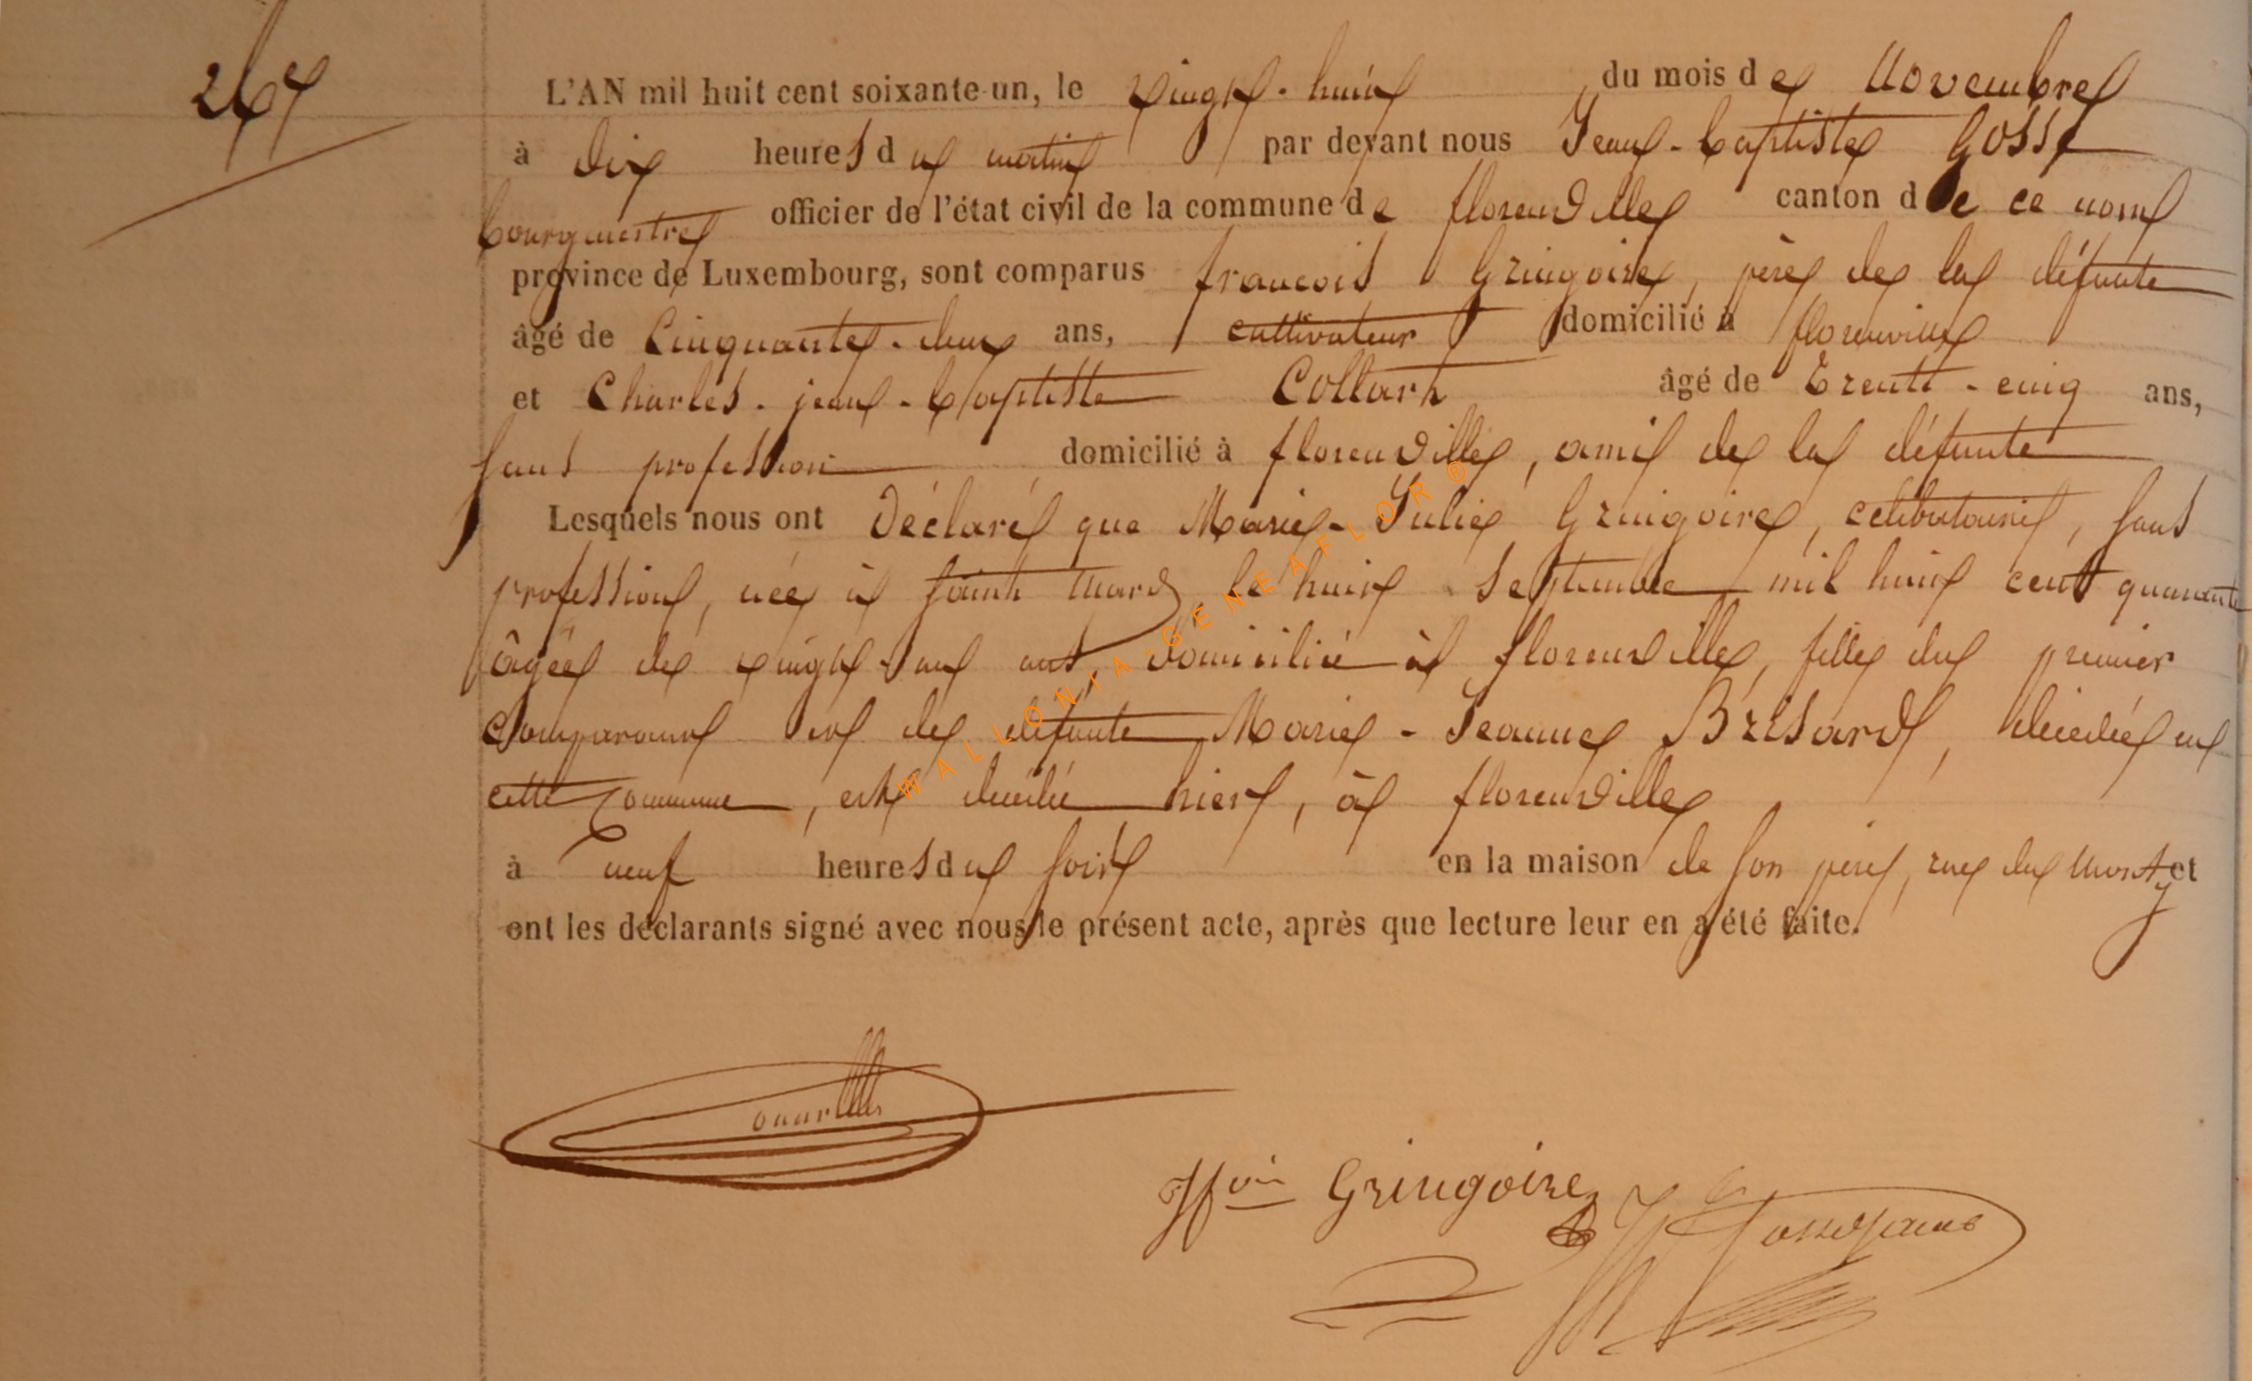 267
L'AN mil huit cent soixante-un, le vingt-huit du mois de Novembre
à dix heures du matin par devant nous Jean-Baptiste Gosse
bourgmestre officier de l'état civil de la commune de florenville canton de ce nom
province de Luxembourg, sont comparus francois Gringoire, père de la défunte
âgé de Cinquante-deux ans, cultivateur domicilié à florenville
et Charles-jean-baptiste Collart âgé de Trente-cinq ans,
sans profession domicilié à florenville, ami de la défunte
Lesquels nous ont déclaré que Marie-Julie Gringoire, celibataire, sans
profession, née à Saint Mard, le huit Septembre mil huit cent quarante
âgée de vingt-un ans, domiciliée à florenville, fille du premier
Comparant et de défunte Marie-Jeanne Brisard, décédée en
cette Commune, est décédée hier, à florenville
à neuf heures du soir en la maison de son père, rue du et
ont les déclarants signé avec nous le présent acte, après que lecture leur en a été faite.
Gringoire
WALLONIA-GENEAFLOR®